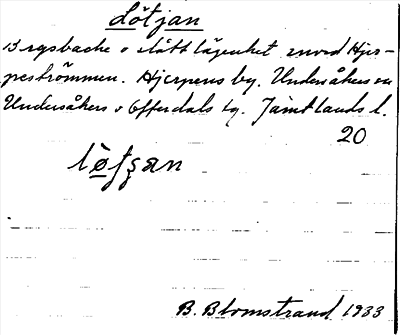 Lötjan
Bergsbacke o slåttlägenhet invid Hjer-
peströmmen. Hjerpens by. Undersåkers sn
Undersåkers o Offerdals tg. Jämtlands l.
20
B. Blomstrand 1933